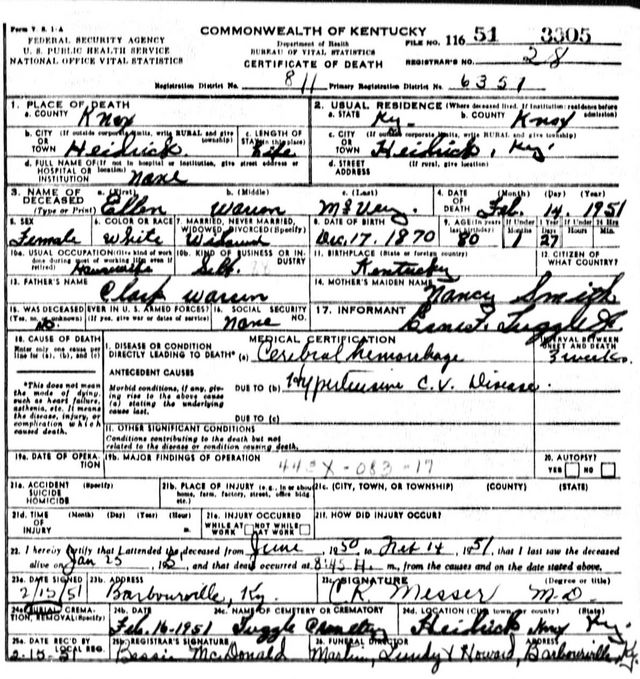 Form V S 1-A
COMMONWEALTH OF KENTUCKY
FEDERAL SECURITY AGENCY
U. S. PUBLIC HEALTH SERVICE
NATIONAL OFFICE VITAL STATISTICS
Department of Health
BUREAU OF VITAL STATISTICS
CERTIFICATE OF DEATH
FILE NO. 116 51 3305
REGISTRAR'S NO. 28
Registration District No. 811 Primary Registration District No. 6351
1. PLACE OF DEATH
a. COUNTY Knox
2. USUAL RESIDENCE (Where deceased lived. If institution: residence before admission)
a. STATE Ky. b. COUNTY Knox
b. CITY (If outside corporate limits, write RURAL and give township) OR TOWN Heidrick
c. LENGTH OF STAY (in this place) Life
c. CITY (If outside corporate limits, write RURAL and give township) OR TOWN Heidrick, Ky.
d. FULL NAME OF (If not in hospital or institution, give street address or location) HOSPITAL OR INSTITUTION None
d. STREET ADDRESS (If rural, give location)
3. NAME OF DECEASED (Type or Print) a. (First) Ellen b. (Middle) Warren c. (Last)
4. DATE OF DEATH (Month) Feb. (Day) 14, (Year) 1951
5. SEX Female
6. COLOR OR RACE White
7. MARRIED, NEVER MARRIED, WIDOWED, DIVORCED (Specify) Widowed
8. DATE OF BIRTH Dec. 17, 1870
9. AGE (In years last birthday) 80 If Under 1 Year Months 1 Days 27 If Under 24 Hrs Hours Min.
10a. USUAL OCCUPATION (Give kind of work done during most of working life, even if retired) Housewife
10b. KIND OF BUSINESS OR INDUSTRY Self
11. BIRTHPLACE (State or foreign country) Kentucky
12. CITIZEN OF WHAT COUNTRY?
13. FATHER'S NAME Warren
14. MOTHER'S MAIDEN NAME Nancy Smith
15. WAS DECEASED EVER IN U. S. ARMED FORCES? (Yes, no, or unknown) (If yes, give war or dates of service) No.
16. SOCIAL SECURITY NO. None
17. INFORMANT Tuggle
18. CAUSE OF DEATH
Enter only one cause per line for (a), (b), and (c)
MEDICAL CERTIFICATION
INTERVAL BETWEEN ONSET AND DEATH
I. DISEASE OR CONDITION DIRECTLY LEADING TO DEATH* (a) Cerebral hemorrhage 3 weeks
*This does not mean the mode of dying, such as heart failure, asthenia, etc. It means the disease, injury, or complication which caused death.
ANTECEDENT CAUSES
Morbid conditions, if any, giving rise to the above cause (a) stating the underlying cause last.
DUE TO (b) Hypertensive C.V. Disease.
DUE TO (c)
II. OTHER SIGNIFICANT CONDITIONS
Conditions contributing to the death but not related to the disease or condition causing death.
19a. DATE OF OPERATION
19b. MAJOR FINDINGS OF OPERATION
443X-083-17
20. AUTOPSY? YES NO
21a. ACCIDENT SUICIDE HOMICIDE (Specify)
21b. PLACE OF INJURY (e.g., in or about home, farm, factory, street, office bldg. etc.)
21c. (CITY, TOWN, OR TOWNSHIP) (COUNTY) (STATE)
21d. TIME OF INJURY (Month) (Day) (Year) (Hour) m.
21e. INJURY OCCURRED WHILE AT WORK NOT WHILE AT WORK
21f. HOW DID INJURY OCCUR?
22. I hereby certify that I attended the deceased from June, 1950, to Feb 14, 1951, that I last saw the deceased
alive on Jan 25, 195 , and that death occurred at 8:45 A. m., from the causes and on the date stated above.
23a. DATE SIGNED 2/15/51
23b. ADDRESS Barbourville, Ky.
23c. SIGNATURE (Degree or title) C R Messer M.D.
24a. BURIAL, CREMATION, REMOVAL (Specify)
24b. DATE Feb. 16-1951
24c. NAME OF CEMETERY OR CREMATORY Tuggle Cemetery
24d. LOCATION (City, town or county) (State) Heidrick Knox Ky.
25a. DATE REC'D BY LOCAL REG. 2-15-51
25b. REGISTRAR'S SIGNATURE Bessie McDonald
26. FUNERAL DIRECTOR ADDRESS Martin, Lundy & Howard, Barbourville, Ky.